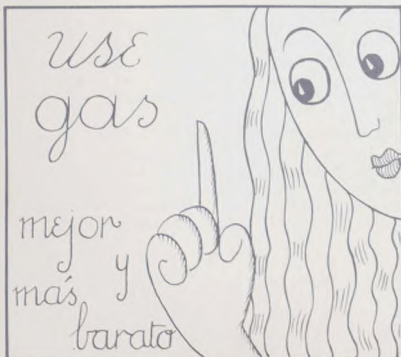 use
gas
mejor
y
más
barato